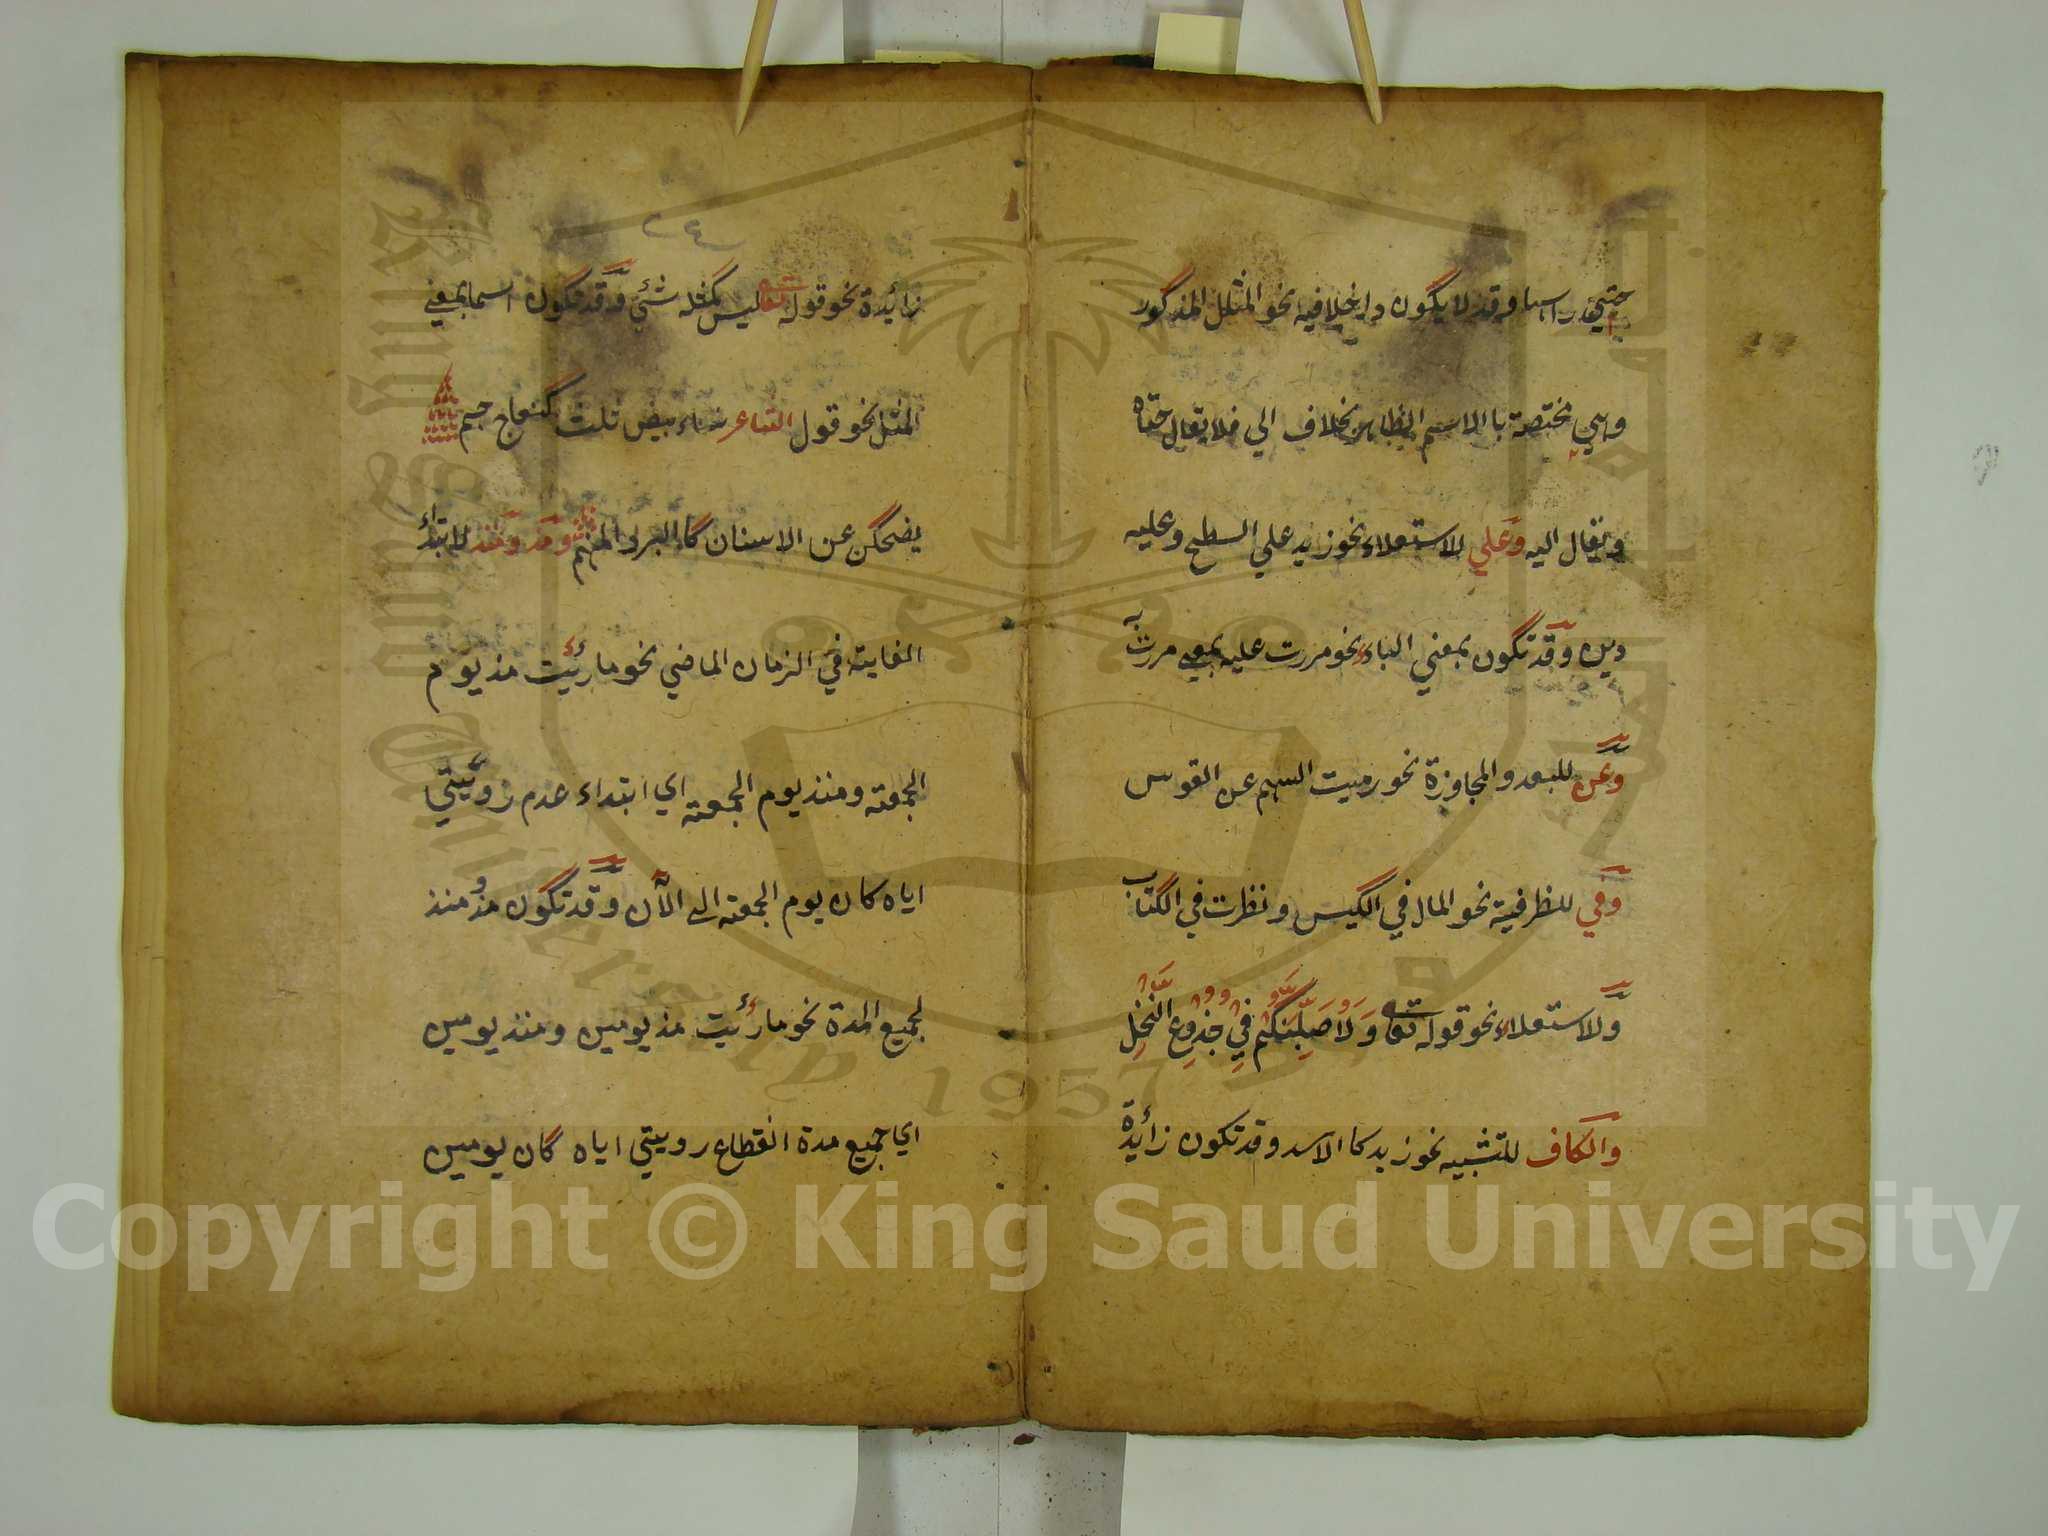 حتي راسها وقد لا يكون داخلا فيه نحو المثل المذكور
وهي مختصة با الاسم الظاهر بخلاف الي فلا يقال حتاه
ويقال اليه وعلي للاستعلاء نحو زيد علي السطح وعليه
دين وقد تكون بمعني الباء نحو مررت عليه بمعني مررت به
وعن للبعد والمجاوزة نحو رميت السهم عن القوس
وفي للظرفية نحو المال في الكيس ونظرت في الكتاب
وللاستعلاء نحو قوله تعا وَلَاُصَلِّبَنَّكُمْ فِي جُذُوعِ النَّخْلِ
والكاف للتشبيه نحو زيد كا الاسد وقد تكون زائدة
٢٤
زائدة نحو قوله تعا ليس كمثله شئي وقد تكون اسما بمعني
المثل نحو قول الشاعر بيض ثلث كنعاج جم
يضحكن عن الاسنان كا البرد المنهم ومذ ومنذ للابتداء
الغاية في الزمان الماضي نحو ما رئيت مذ يوم
الجمعة ومنذ يوم الجمعة اي ابتداء عدم رؤيتي
اياه كان يوم الجمعة الي الآن وقد تكون مذ ومنذ
لجميع المدة نحو ما رئيت مذ يومين ومنذ يومين
اي جميع مدة انقطاع رويتي اياه كان يومين
King Saud University
1957
Copyright © King Saud University